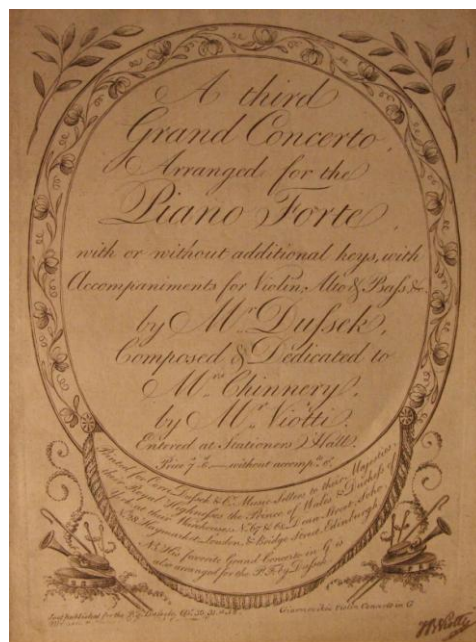 A third
Grand Concerto,
Arranged for the
Piano Forte,
with or without additional keys, with
Accompaniments for Violin, Alto & Bass, &c.
by Mr. Dussek,
Composed & Dedicated to
Mrs. Chinnery,
by Mr. Viotti.
Entered at Stationers Hall.
Price 7s 6d — without accompts. 6s
Printed for Corri, Dussek & Co. Music Sellers to their Majesties
their Royal Highnesses the Prince of Wales & Dutchess of
York at their Warehouses No. 67 & 68 Dean Street Soho
No. 28 Haymarket London & Bridge Street Edinburgh
NB. His favorite Grand Concerto in G is
also arranged for the P.F. by Dussek
Just published for the
Giornovichi's Violin Concerto in G